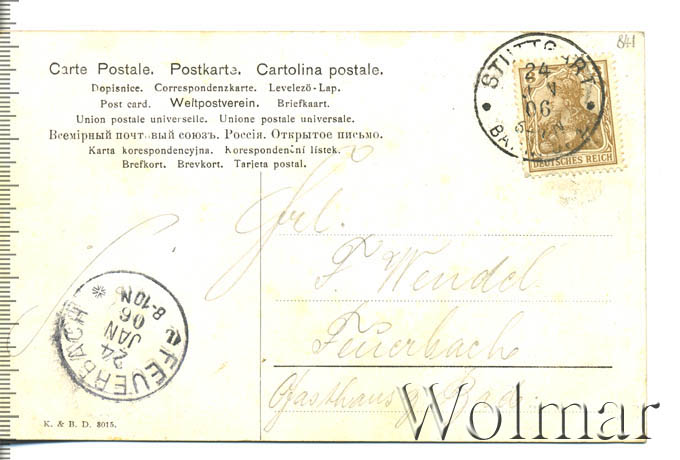 841
Carte Postale. Postkarte. Cartolina postale.
Dopisnice. Correspondenzkarte. Levelező-Lap.
Post card. Weltpostverein. Briefkaart.
Union postale universelle. Unione postale universale.
Всемірный почтовый союзъ. Россія. Открытое письмо.
Karta korespondencyjna. Korespondenční lístek.
Brefkort. Brevkort. Tarjeta postal.
STUTTGART
24
06
DEUTSCHES REICH
Frl.
F. Wendel
Feuerbach
Gasthaus z. Bad
FEUERBACH
24
JAN
06
8-10N
K. & B. D. 8015.
Wolmar